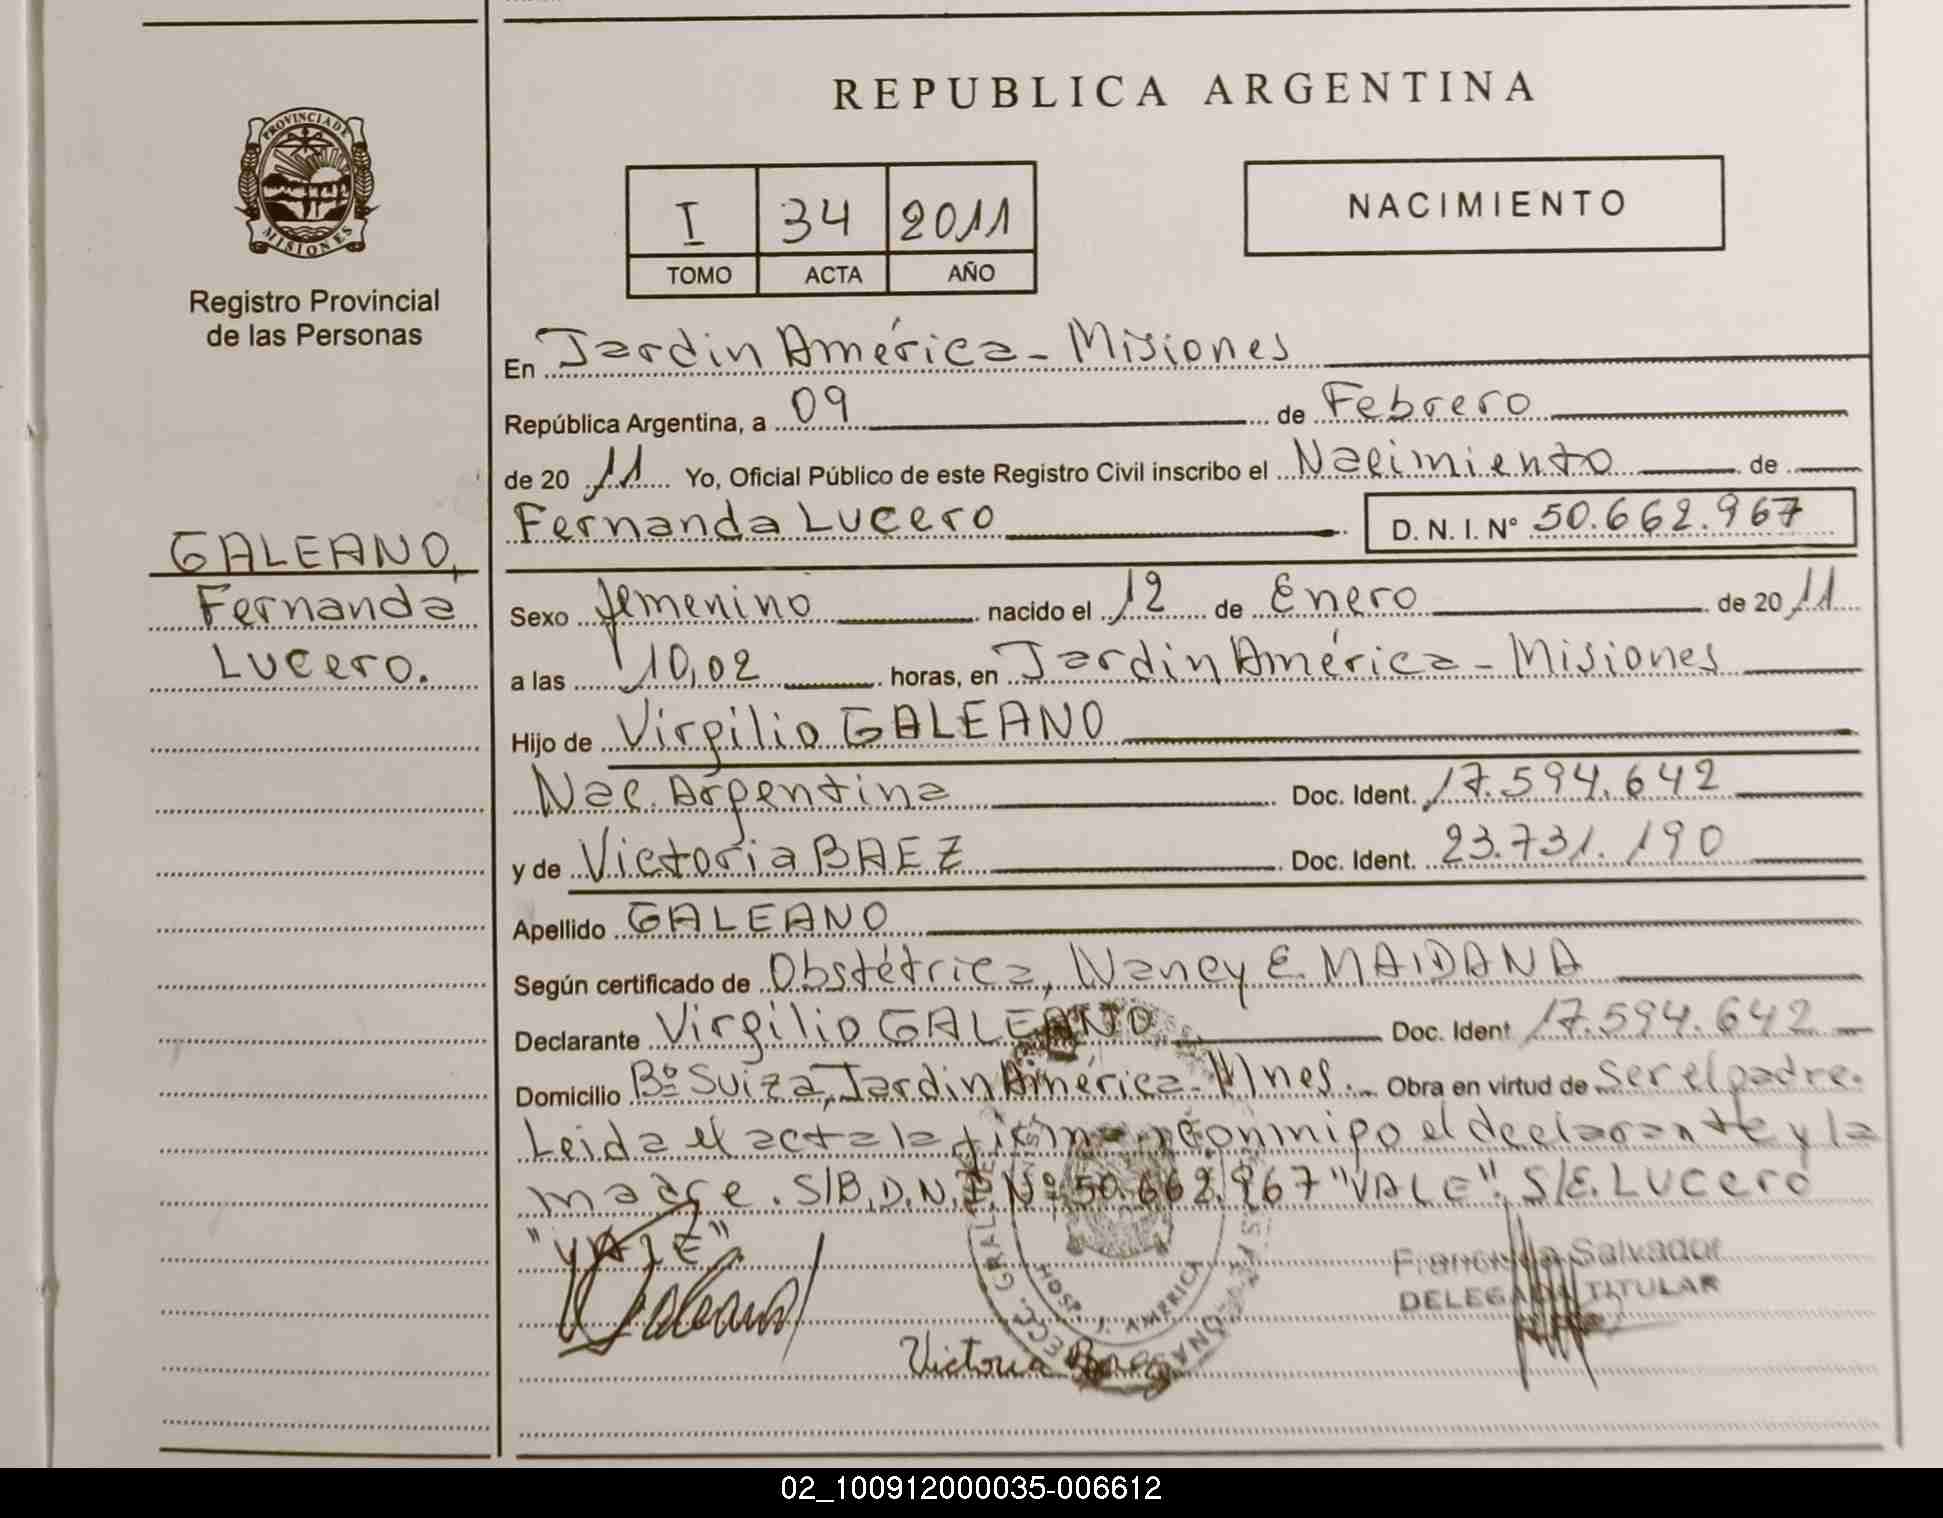 REPUBLICA ARGENTINA
PROVINCIA DE
MISIONES
Registro Provincial
de las Personas
I 34 2011
TOMO ACTA AÑO
NACIMIENTO
En Jardin América - Misiones
República Argentina, a 09 de Febrero
de 20 11 Yo, Oficial Público de este Registro Civil inscribo el Nacimiento de
Fernanda Lucero D. N. I. N° 50.662.967
GALEANO,
Fernanda
Lucero.
Sexo femenino nacido el 12 de Enero de 20 11
a las 10,02 horas, en Jardin América - Misiones
Hijo de Virgilio GALEANO
Nac. Argentina Doc. Ident. 17.594.642
y de Victoria BAEZ Doc. Ident. 23.731.190
Apellido GALEANO
Según certificado de Obstétrica, Nancy E. MAIDANA
Declarante Virgilio GALEANO Doc. Ident 17.594.642
Domicilio Bº Suiza, Jardin América - Mnes. Obra en virtud de ser el padre.
Leida el acta la firman conmigo el declarante y la
madre. S/B, D.N.I Nº 50.662.967 "VALE". S/E. Lucero
"VALE"
Galeano
Salvador
DELEGADA TITULAR
HOSP. J. AMERICA
Victoria Baez
02_100912000035-006612